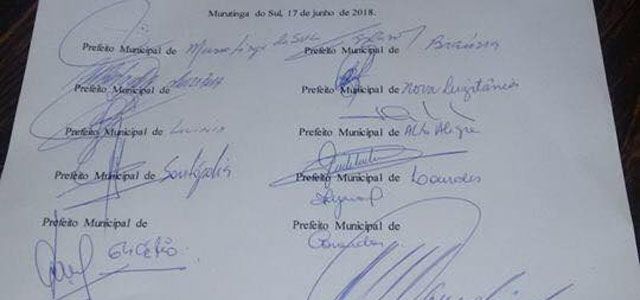 Murutinga do Sul, 17 de junho de 2018.
Prefeito Municipal de Murutinga do Sul
Prefeito Municipal de Braúna
Prefeito Municipal de
Prefeito Municipal de Nova Luzitânia
Prefeito Municipal de
Prefeito Municipal de Alto Alegre
Prefeito Municipal de Santópolis
Prefeito Municipal de Lourdes
Prefeito Municipal de
Prefeito Municipal de
Glicério
Coroados